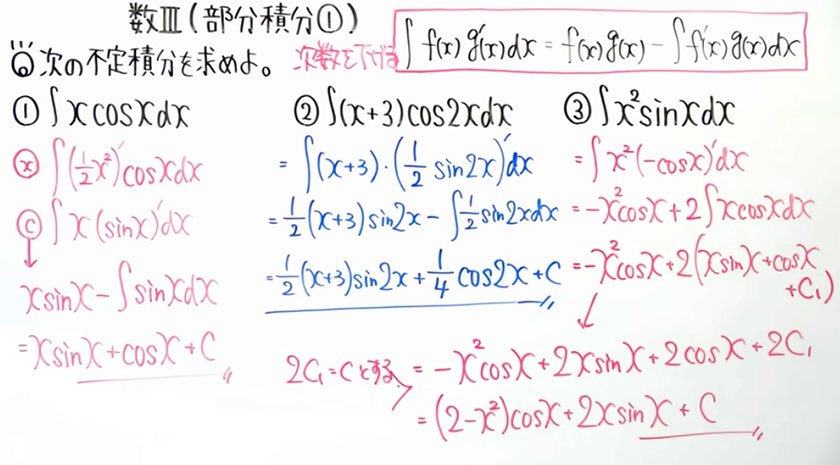 数Ⅲ(部分積分①)
◎次の不定積分を求めよ。 次数を下げる
∫f(x)g'(x)dx = f(x)g(x) - ∫f'(x)g(x)dx
① ∫xcosxdx
ⓧ ∫(1/2 x²)'cosxdx
ⓒ ∫x(sinx)'dx
↓
xsinx - ∫sinxdx
= xsinx + cosx + C
② ∫(x+3)cos2xdx
= ∫(x+3)·(1/2 sin2x)'dx
= 1/2(x+3)sin2x - ∫1/2 sin2xdx
= 1/2(x+3)sin2x + 1/4 cos2x + C
③ ∫x²sinxdx
= ∫x²(-cosx)'dx
= -x²cosx + 2∫xcosxdx
= -x²cosx + 2(xsinx + cosx + C₁)
2C₁=Cとする = -x²cosx + 2xsinx + 2cosx + 2C₁
= (2-x²)cosx + 2xsinx + C